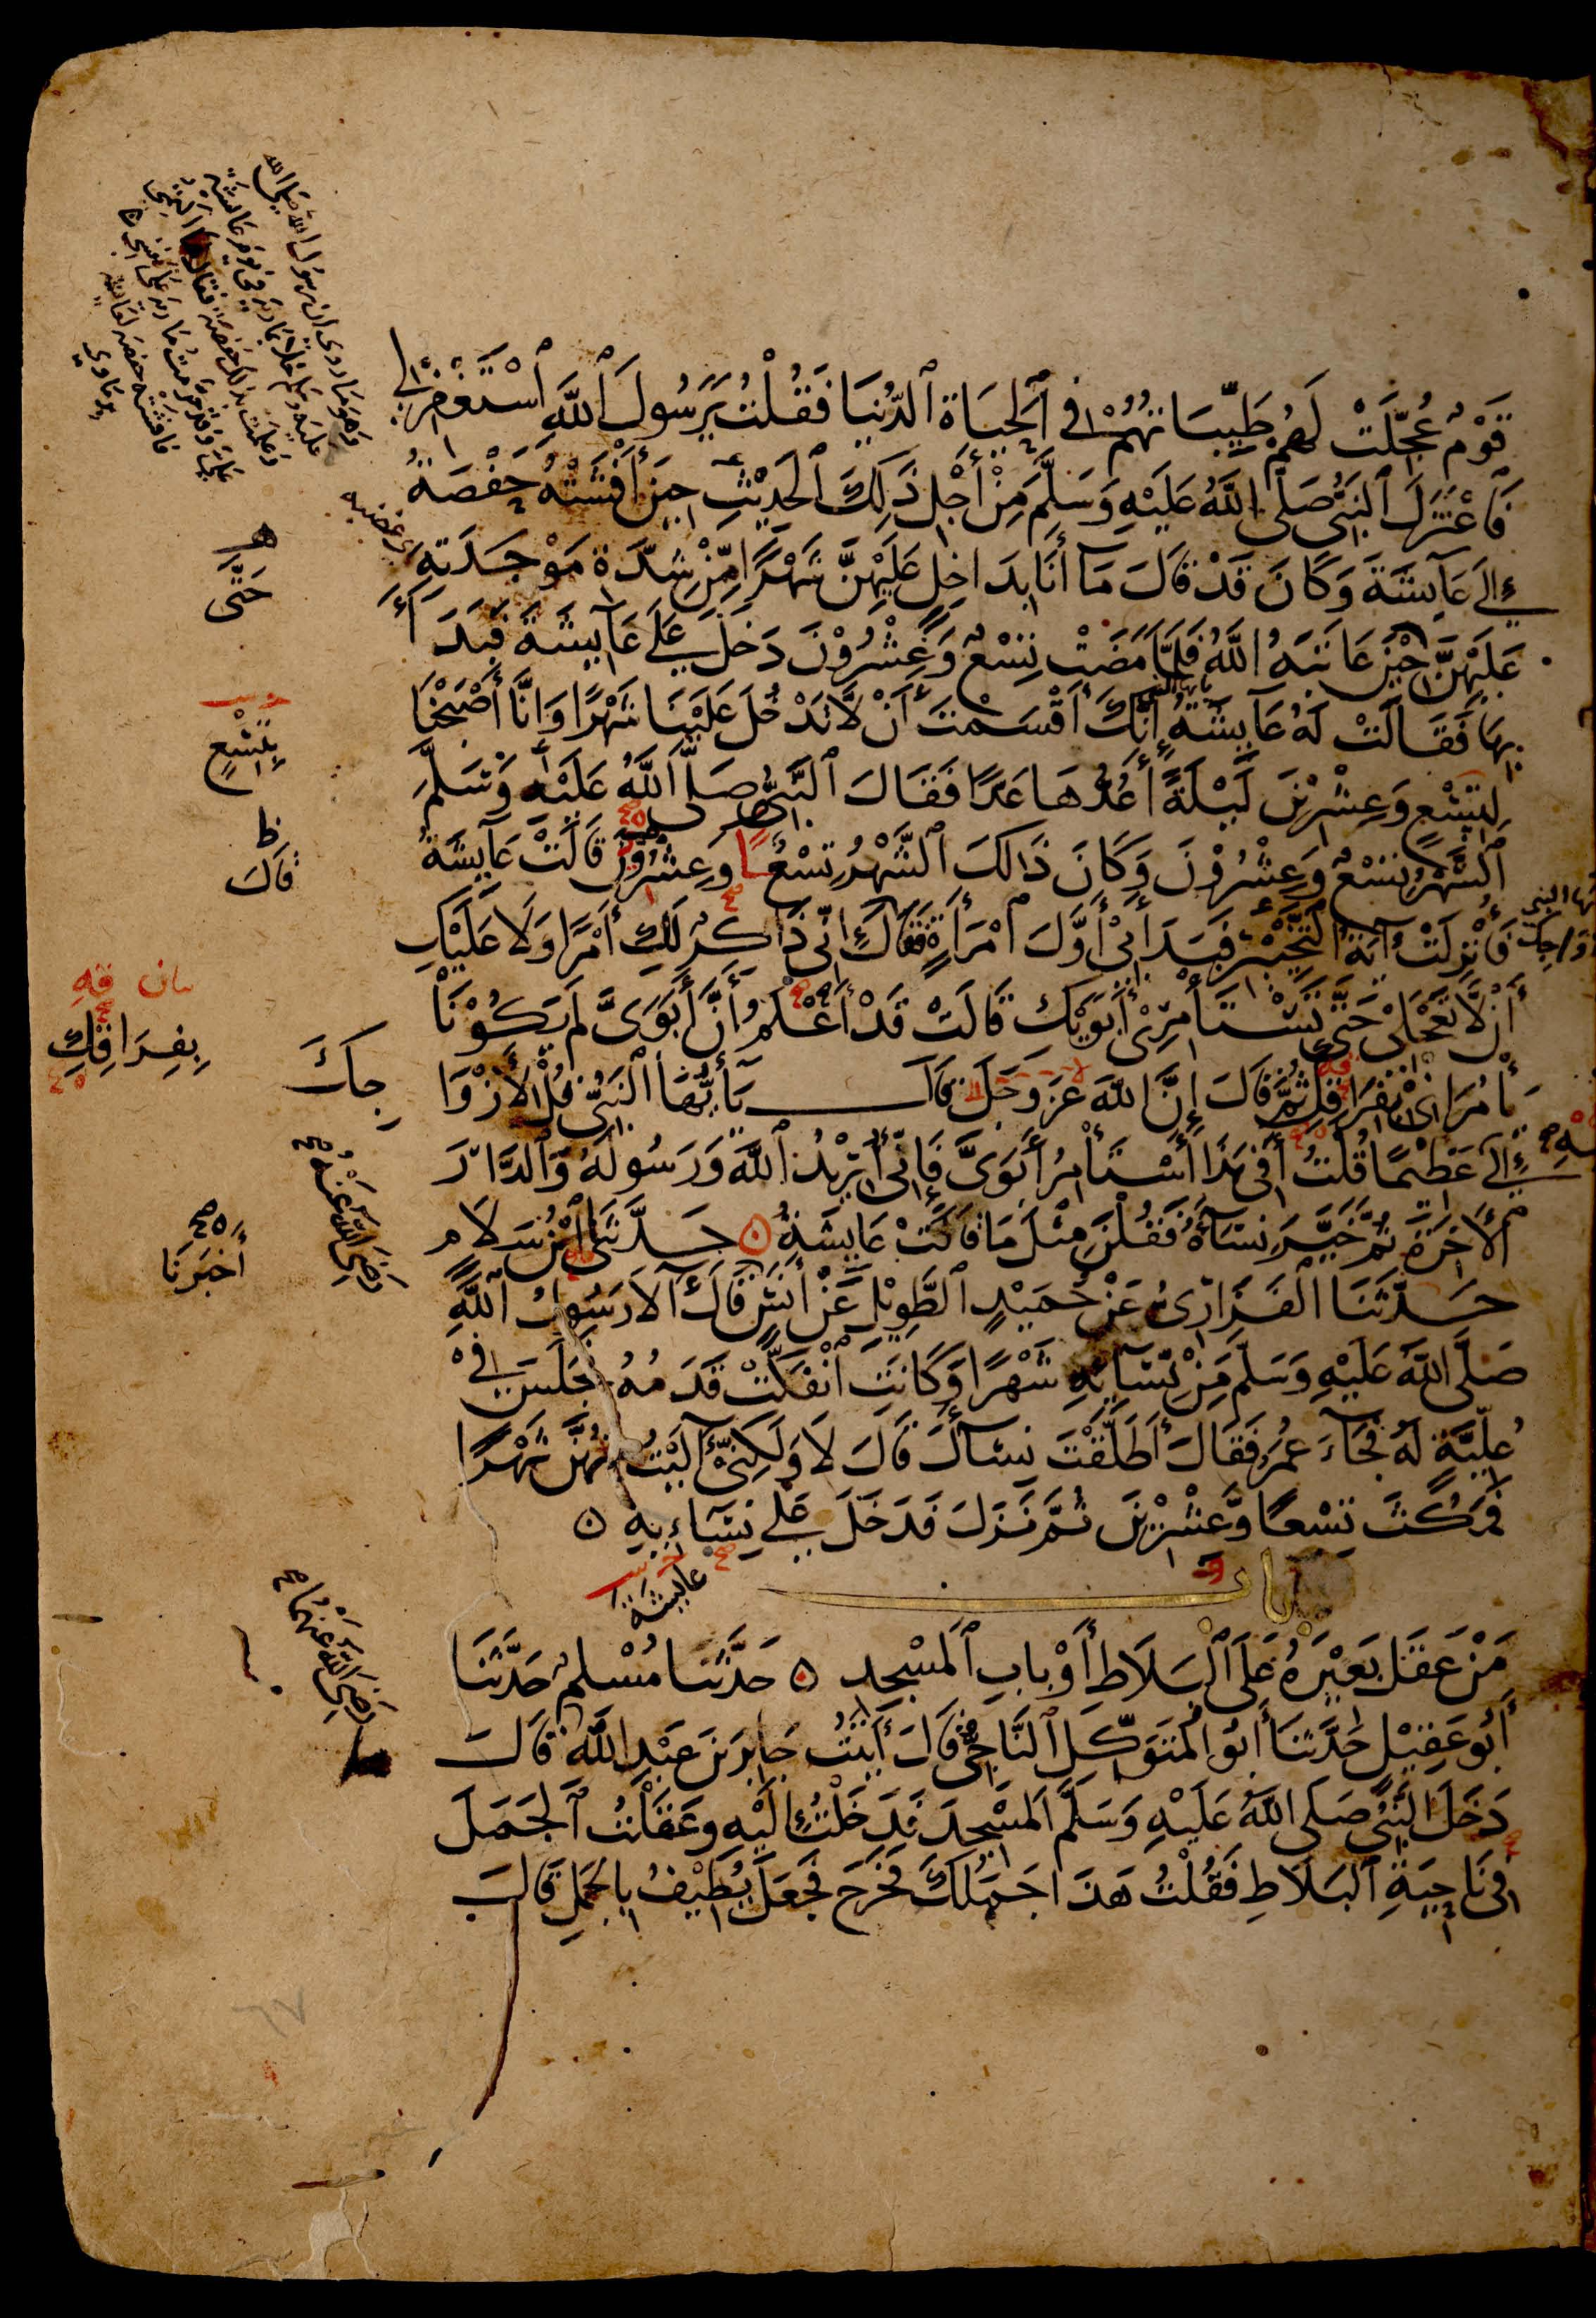 قَوْمٌ عُجِّلَتْ لَهُمْ طَيِّبَاتُهُمْ فِي ٱلْحَيَاةِ ٱلدُّنْيَا فَقُلْتُ يَرَسُولَ ٱللَّهِ ٱسْتَغْفِرْ لِي
فَٱعْتَزَلَ ٱلنَّبِيُّ صَلَّى اللَّهُ عَلَيْهِ وَسَلَّمَ مِنْ أَجْلِ ذَلِكَ ٱلْحَدِيْثِ حِيْنَ أَفْشَتْهُ حَفْصَةُ
إِلَى عَآئِشَةَ وَكَانَ قَدْ قَالَ مَآ أَنَا بِدَاخِلٍ عَلَيْهِنَّ شَهْرًا مِّنْ شِدَّةِ مَوْجَدَتِهِ
عَلَيْهِنَّ حِيْنَ عَاتَبَهُ اللَّهُ فَلَمَّا مَضَتْ تِسْعٌ وَّعِشْرُوْنَ دَخَلَ عَلَى عَآئِشَةَ فَبَدَأَ
بِهَا فَقَالَتْ لَهُ عَآئِشَةُ إِنَّكَ أَقْسَمْتَ أَنْ لَّا تَدْخُلَ عَلَيْنَا شَهْرًا وَإِنَّا أَصْبَحْنَا
لِتِسْعٍ وَعِشْرِيْنَ لَيْلَةً أَعُدُّهَا عَدًّا فَقَالَ ٱلنَّبِيُّ صَلَّى اللَّهُ عَلَيْهِ وَسَلَّمَ
ٱلشَّهْرُ تِسْعٌ وَعِشْرُوْنَ وَكَانَ ذَالِكَ ٱلشَّهْرُ تِسْعًا وَعِشْرِيْنَ قَالَتْ عَآئِشَةُ
فَأُنْزِلَتْ آيَةُ ٱلتَّخْيِيْرِ فَبَدَأَ بِي أَوَّلَ ٱمْرَأَةٍ فَقَالَ إِنِّي ذَاكِرٌ لَكِ أَمْرًا وَلَا عَلَيْكِ
أَنْ لَّا تَعْجَلِي حَتَّى تَسْتَأْمِرِي أَبَوَيْكِ قَالَتْ قَدْ أَعْلَمُ أَنَّ أَبَوَيَّ لَمْ يَكُوْنَا
يَأْمُرَانِي بِفِرَاقِكَ ثُمَّ قَالَ إِنَّ اللَّهَ عَزَّ وَجَلَّ قَالَ يَآ أَيُّهَا النَّبِيُّ قُلْ لِأَزْوَا
إِلَى عَظِيْمًا قُلْتُ أَفِي هَذَا أَسْتَأْمِرُ أَبَوَيَّ فَإِنِّي أُرِيْدُ ٱللَّهَ وَرَسُولَهُ وَٱلدَّارَ
ٱلْآخِرَةَ ثُمَّ خَيَّرَ نِسَآءَهُ فَقُلْنَ مِثْلَ مَا قَالَتْ عَآئِشَةُ ۞ حَدَّثَنَا ٱبْنُ سَلَامٍ
حَدَّثَنَا ٱلْفَزَارِيُّ عَنْ حُمَيْدٍ ٱلطَّوِيْلِ عَنْ أَنَسٍ قَالَ آلَى رَسُولُ ٱللَّهِ
صَلَّى اللَّهُ عَلَيْهِ وَسَلَّمَ مِنْ نِّسَآئِهِ شَهْرًا وَّكَانَتِ ٱنْفَكَّتْ قَدَمُهُ فَجَلَسَ فِي
عُلِّيَّةٍ لَهُ فَجَآءَ عُمَرُ فَقَالَ أَطَلَّقْتَ نِسَآءَكَ قَالَ لَا وَلَكِنِّي آلَيْتُ مِنْهُنَّ شَهْرًا
فَمَكَثَ تِسْعًا وَّعِشْرِيْنَ ثُمَّ نَزَلَ فَدَخَلَ عَلَى نِسَآئِهِ ۞
باب
مَنْ عَقَلَ بَعِيْرَهُ عَلَى ٱلْبَلَاطِ أَوْ بَابِ ٱلْمَسْجِدِ ۞ حَدَّثَنَا مُسْلِمٌ حَدَّثَنَا
أَبُو عَقِيْلٍ حَدَّثَنَا أَبُو ٱلْمُتَوَكِّلِ ٱلنَّاجِيُّ قَالَ أَتَيْتُ جَابِرَ بْنَ عَبْدِ اللَّهِ قَالَ
دَخَلَ النَّبِيُّ صَلَّى اللَّهُ عَلَيْهِ وَسَلَّمَ ٱلْمَسْجِدَ فَدَخَلْتُ إِلَيْهِ وَعَقَلْتُ ٱلْجَمَلَ
فِي نَاحِيَةِ ٱلْبَلَاطِ فَقُلْتُ هَذَا جَمَلُكَ فَخَرَجَ فَجَعَلَ يُطِيْفُ بِالْجَمَلِ قَالَ
اى غضبه
حَتَّى
بِتِسْعٍ
قَالَ
بِفِرَاقِكِ
جِكَ
رَضِيَ اللَّهُ عَنْهُ
أَخْبَرَنَا
عائشة
رَضِيَ اللَّهُ عَنْهُمَا